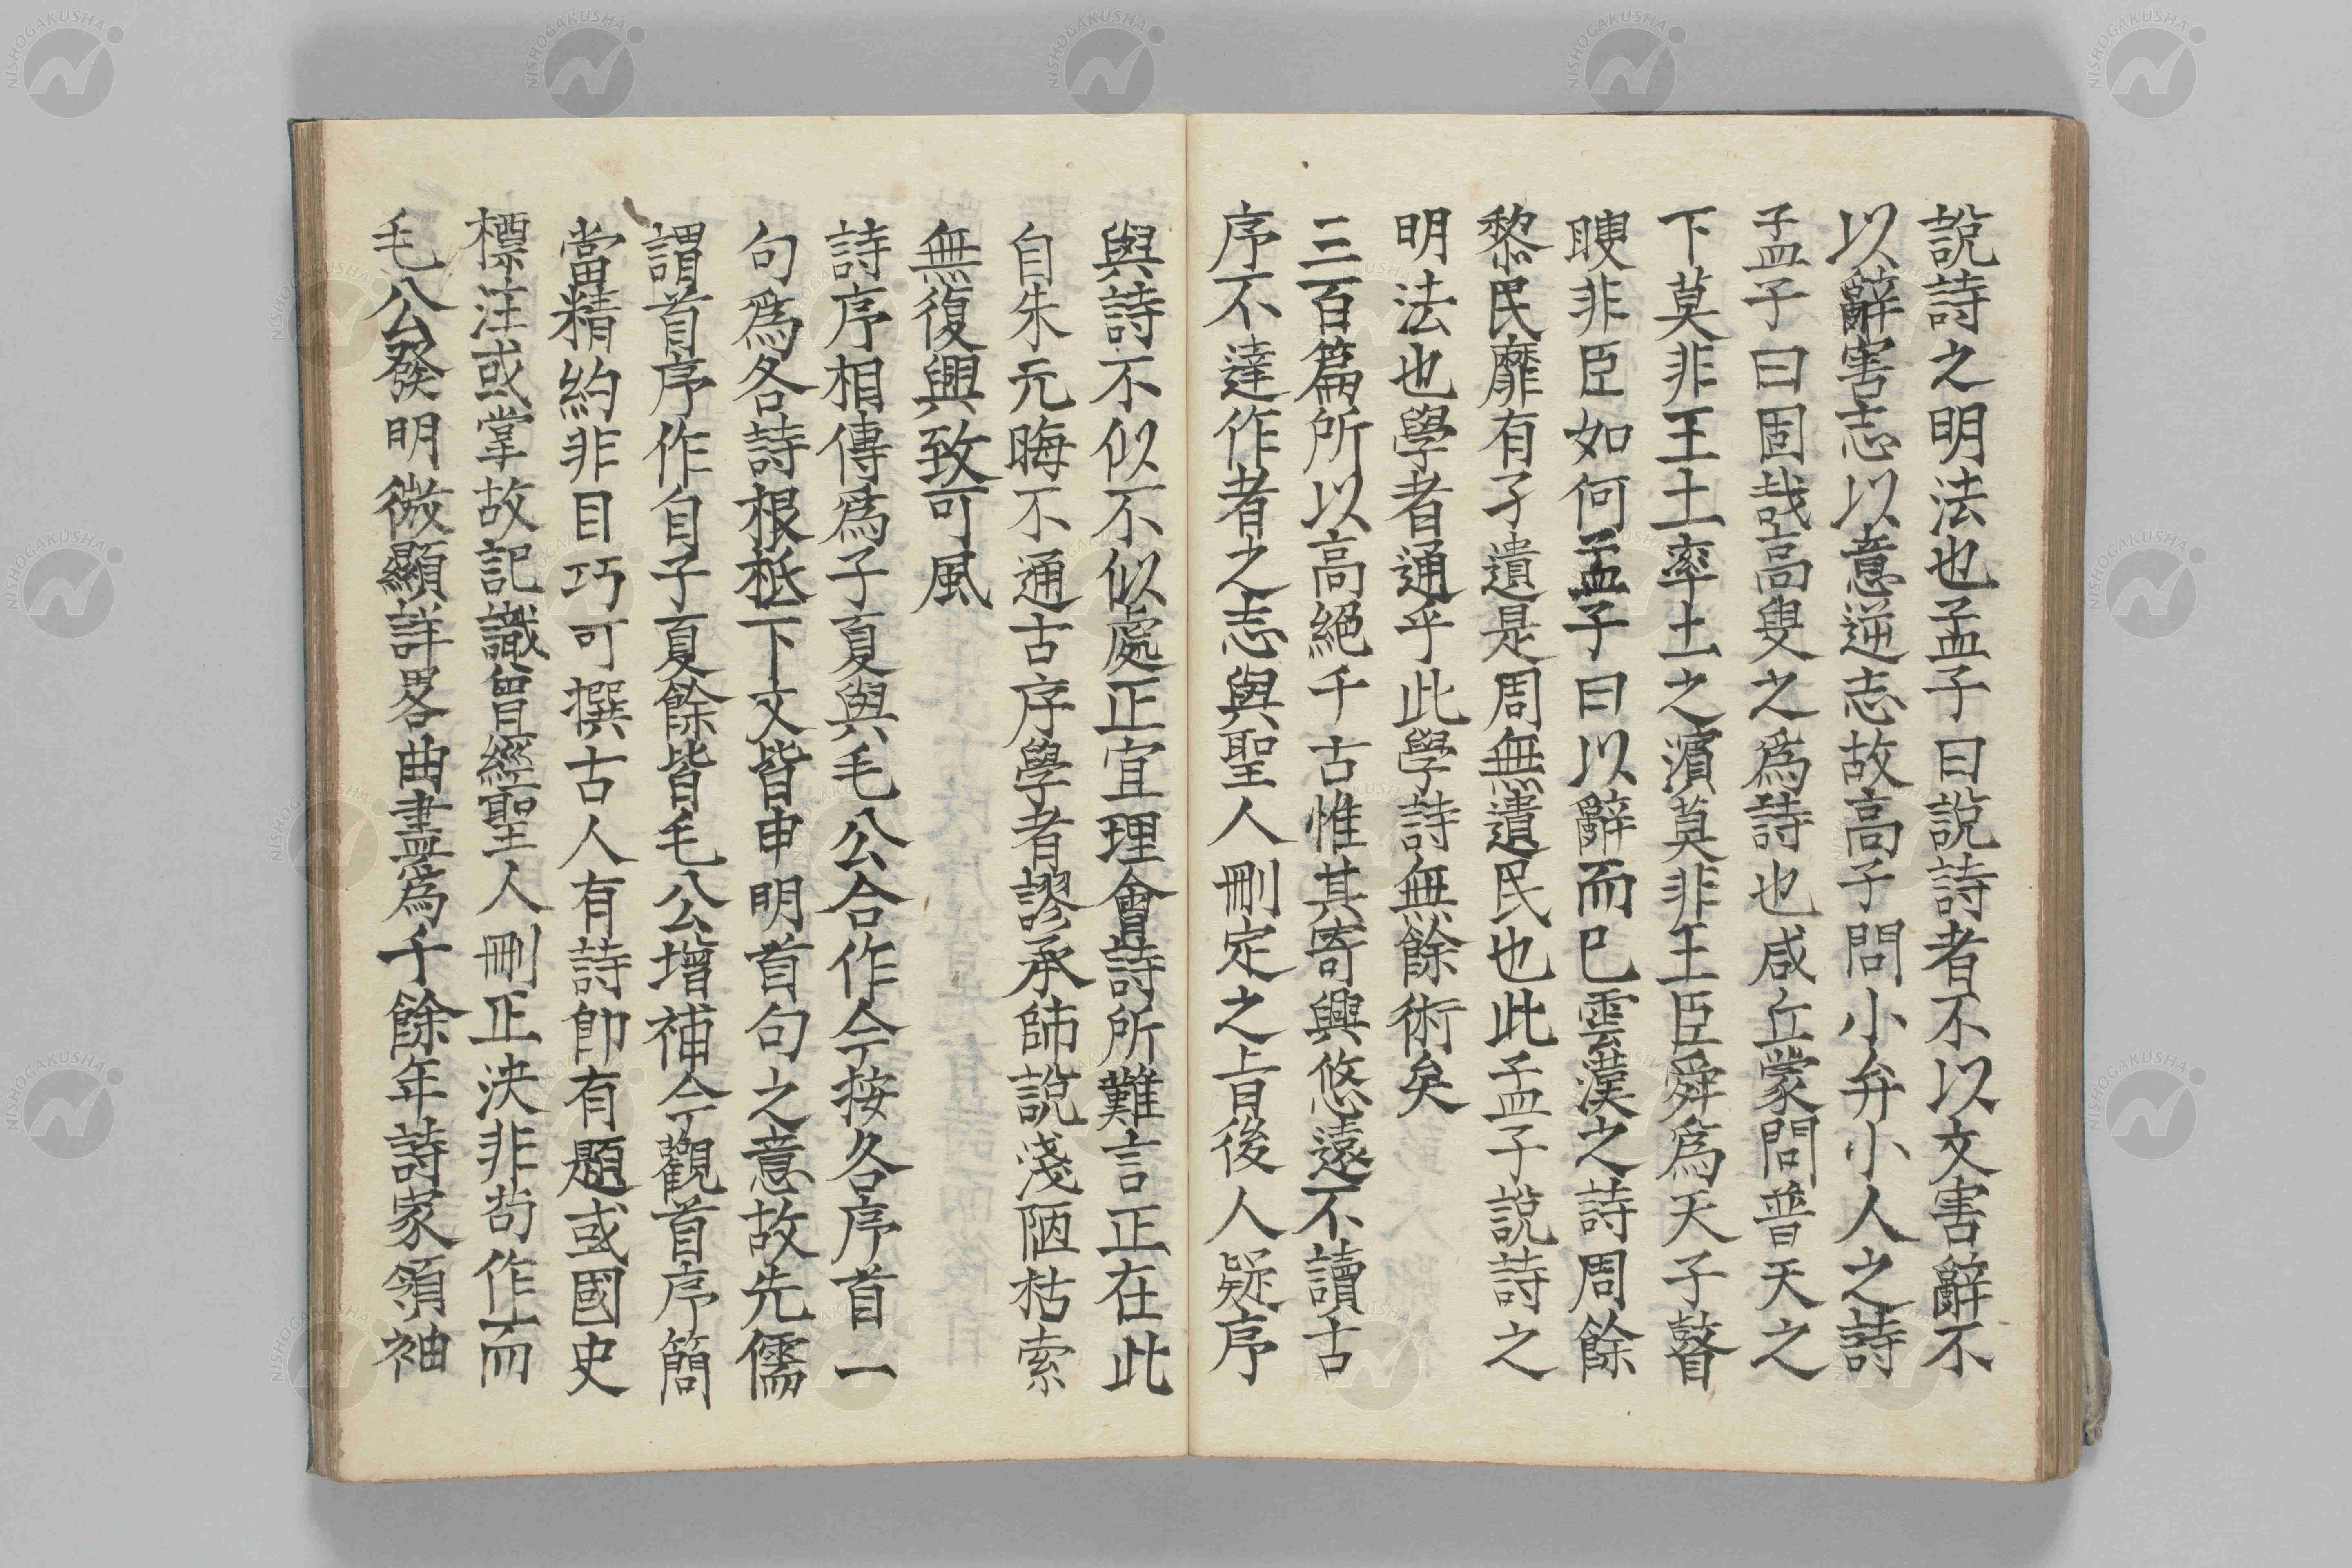 說詩之明法也孟子曰說詩者不以文害辭不
以辭害志以意逆志故高子問小弁小人之詩
孟子曰固哉高叟之爲詩也咸丘蒙問普天之
下莫非王土率土之濱莫非王臣舜爲天子瞽
瞍非臣如何孟子曰以辭而已雲漢之詩周餘
黎民靡有孑遺是周無遺民也此孟子說詩之
明法也學者通乎此學詩無餘術矣
三百篇所以高絕千古惟其寄興悠遠不讀古
序不達作者之志與聖人刪定之旨後人疑序
與詩不似不似處正宜理會詩所難言正在此
自朱元晦不通古序學者謬承師說淺陋枯索
無復興致可風
詩序相傳爲子夏與毛公合作今按各序首一
句爲各詩根柢下文皆申明首句之意故先儒
謂首序作自子夏餘皆毛公增補今觀首序簡
當精約非目巧可撰古人有詩卽有題或國史
標注或掌故記識曾經聖人刪正決非苟作而
毛公發明微顯詳畧曲盡爲千餘年詩家領袖
NISHOGAKUSHA